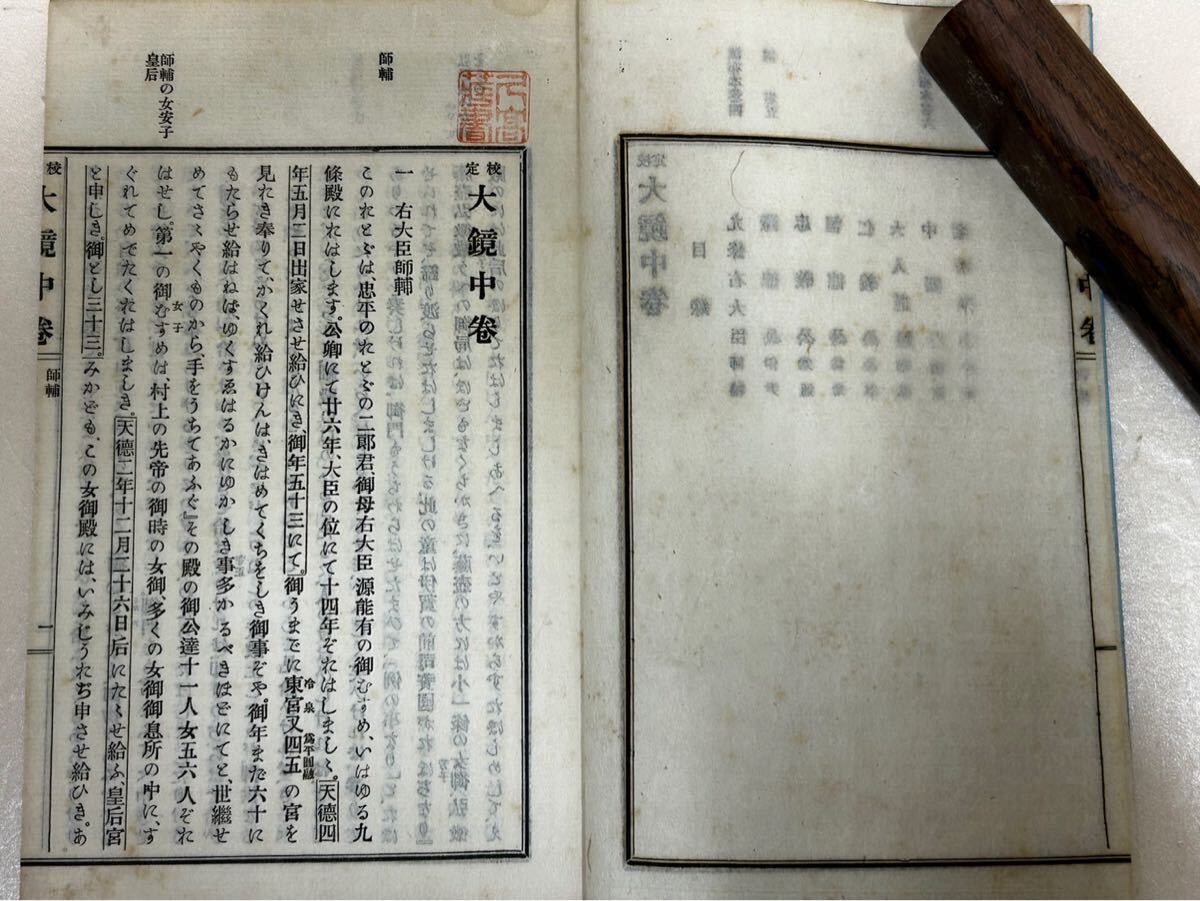 師輔
師輔の女安子
皇后
校定 大鏡中卷
一 右大臣師輔
このおとゞは、忠平のおとゞの二郎君、御母右大臣源能有の御むすめ、いはゆる九
條殿におはします。公卿にて廿六年、大臣の位にて十四年ぞおはしましし。天德四
年五月二日出家せさせ給ひにき、御年五十三にて。御うまごに東宮冷泉又四五爲平圓融の宮を
見おき奉りて、かくれ給ひけんは、きはめてくちをしき御事ぞや。御年まだ六十に
もたらせ給はねば、ゆくすゑはるかにゆかしき事多かるべきほどにてと、世繼せ
めてさゝやくものから、手をうちてあふぐ』その殿の御公達十一人女五六人ぞおは
はせし。第一の御むすめ安子は、村上の先帝の御時の女御、多くの女御御息所の中に、す
ぐれてめでたくおはしましき。天德二年十二月二十六日后にたゝせ給ふ、皇后宮
と申しき。御とし三十三。みかども、この女御殿には、いみじうおぢ申させ給ひき。あ
校定 大鏡中卷 師輔 一
中卷